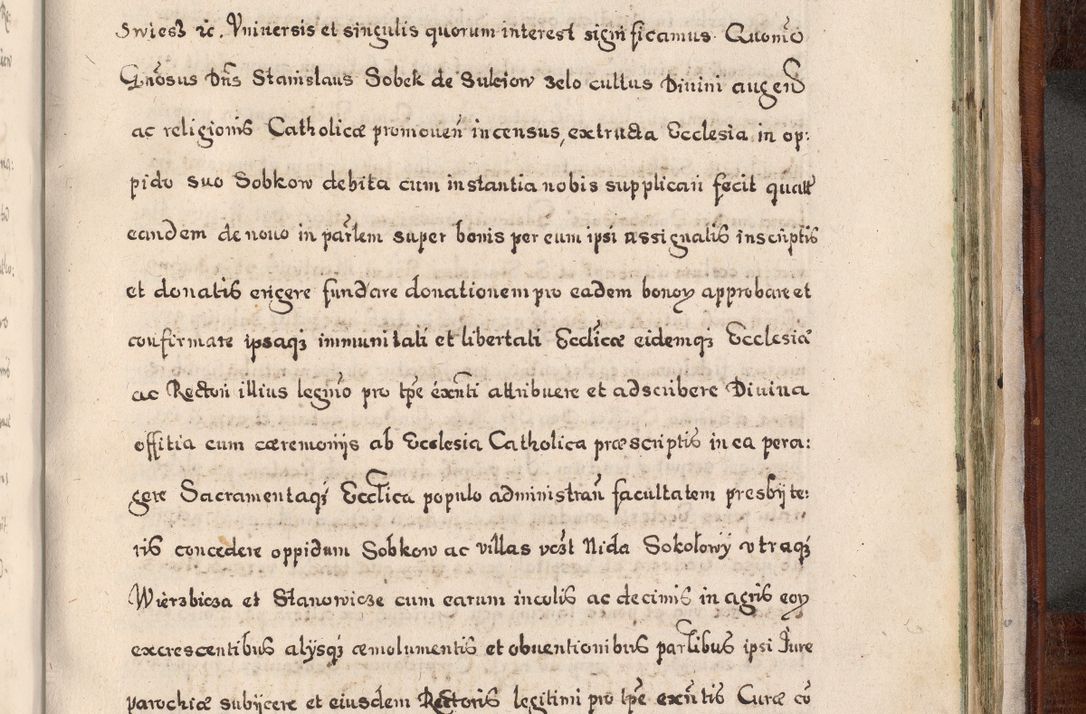 Swiesz ic. Vniuersis et singulis quorum interest significamus Quomo
Gnosus Dns Stanislaus Sobek de Suleiow zelo cultus Diuini augen
ac religionis Catholicæ promouen incensus, extructa Ecclesia in op:
pido suo Sobkow debita cum instantia nobis supplicari fecit quatt
eandem de nouo in parlem super bonis per eum ipsi assignatis inscriptis
et donatis erigere fundare donationem pro eadem bonoy approbare et
confirmare ipsaqz immunitati et libertati Ecclicæ eidemqz Ecclesiæ
ac Rectori illius legimo pro tpe exnti attribuere et adscribere Diuina
offitia cum cæremonijs ab Ecclesia Catholica præscriptis in ea pera:
gere Sacramentaqz Ecclica populo administran facultatem presbyte:
ris concedere oppidum Sobkow ac villas vczt Nida Sokołowy vtraqz
Wierzbicza et Stanowicze cum earum incolis ac decimis in agris eoy
excrescentibus alysqz æmolumentis et obuentionibus partibus ipsi Jure
parochiæ subijcere et eiusdem Rectoris legitimi pro tpe exntis Curæ co